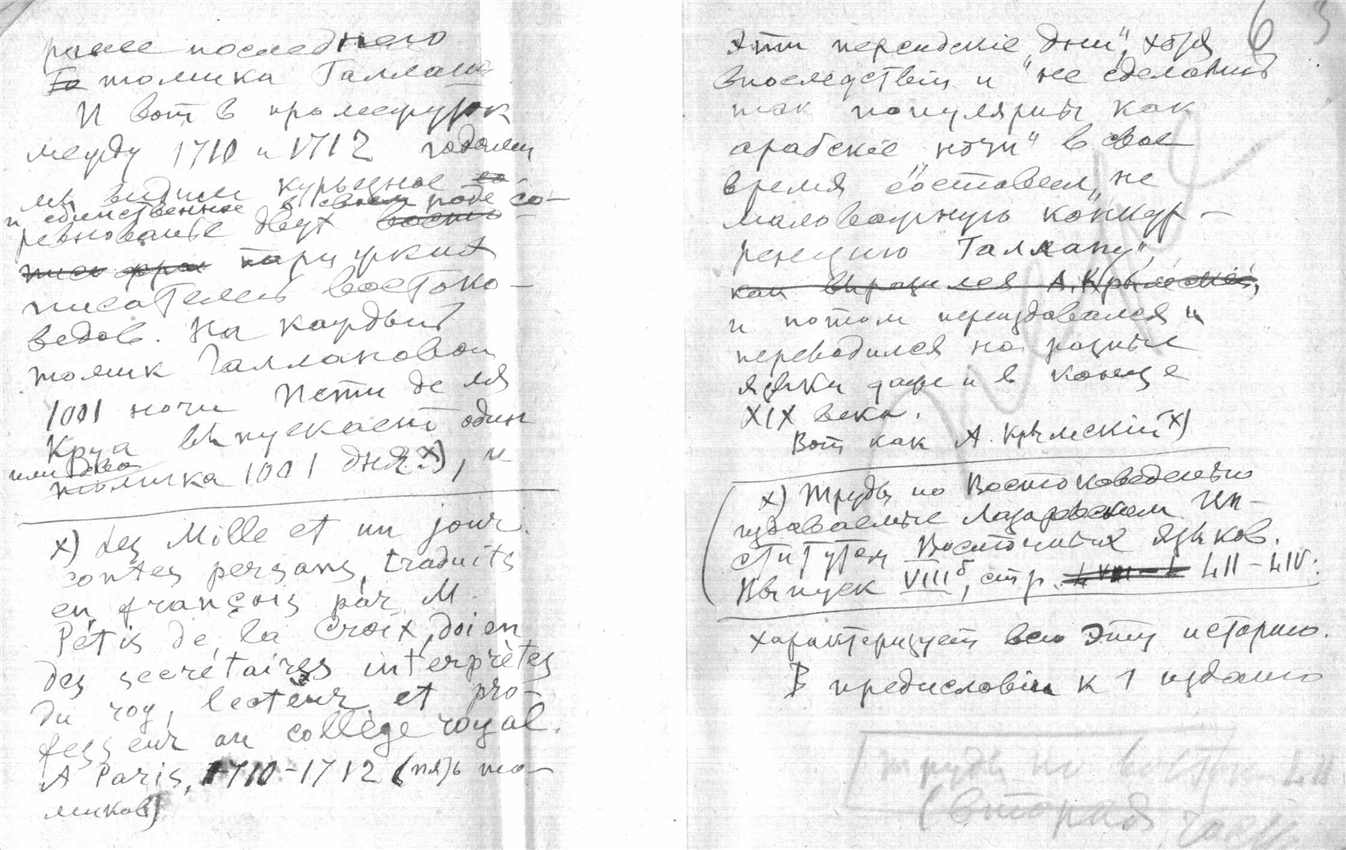 ранее последнего
томика Галлана.
И вот в промежуток
между 1710 и 1712 годами
мы видим курьезное
и единственное в своем роде со-
ревнованье двух
парижских
писателей востоко-
ведов. На каждый
томик Галлановой
1001 ночи Пети де ля
Круа выпускает один
или два
томика 1001 дня x), и
x) Les Mille et un jour.
contes persans, traduits
en françois par M.
Pétis de la Croix, doien
des secrétaires interprètes
du roy, lecteur et pro-
fesseur au collège royal.
A Paris, 1710-1712 (пять то-
миков)
6 3
Эти персидскіе „дни", хотя
впоследствіи и не сделались
так популярны как
арабскіе „ночи" в свое
время составвели не
маловажную конкур-
ренцию Галлану,
как выразился А. Крымскій,
и потом переиздавался и
переводился на разные
языки даже и в конце
XIX века.
Вот как А. Крымскій x)
x) Труды по Востоковеденью
издаваемые Лазаревском Ин-
ститутом Восточных языков.
Выпуск VIIIб, стр. LII-LIV.
характеризует всю эту историю.
В предисловіи к 1 изданію
Труды по Восток LII
(вторая часть